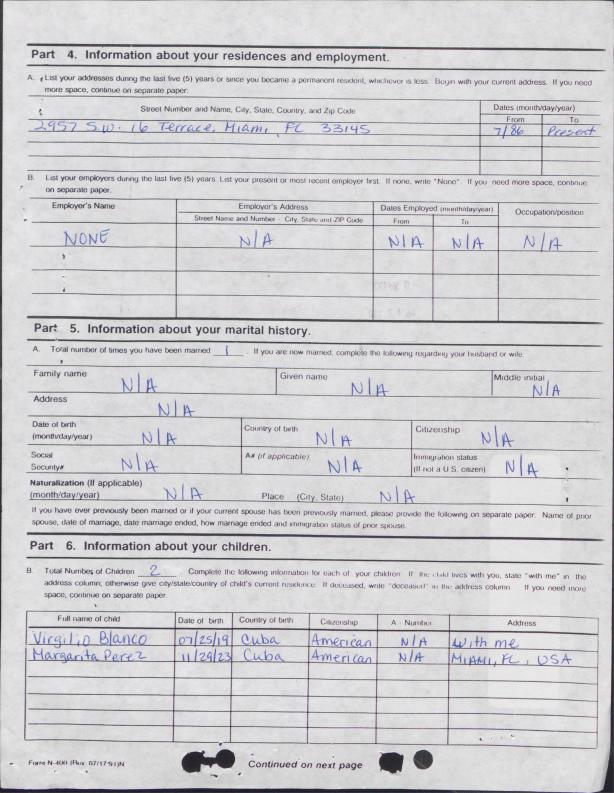 Part 4. Information about your residences and employment.
A. List your addresses during the last five (5) years or since you became a permanent resident, whichever is less. Begin with your current address. If you need
more space, continue on separate paper:
Street Number and Name, City, State, Country, and Zip Code
Dates (month/day/year)
From To
2957 S.W. 16 Terrace, Miami, FL 33145 7/86 Present
B. List your employers during the last five (5) years. List your present or most recent employer first. If none, write "None". If you need more space, continue
on separate paper.
Employer's Name Employer's Address Dates Employed (month/day/year) Occupation/position
Street Name and Number - City, State and ZIP Code From To
NONE N/A N/A N/A N/A
Part 5. Information about your marital history.
A. Total number of times you have been married 1 . If you are now married, complete the following regarding your husband or wife.
Family name N/A Given name N/A Middle initial N/A
Address N/A
Date of birth
(month/day/year) N/A Country of birth N/A Citizenship N/A
Social
Security# N/A A# (if applicable) N/A Immigration status
(If not a U.S. citizen) N/A
Naturalization (If applicable)
(month/day/year) N/A Place (City, State) N/A
If you have ever previously been married or if your current spouse has been previously married, please provide the following on separate paper: Name of prior
spouse, date of marriage, date marriage ended, how marriage ended and immigration status of prior spouse.
Part 6. Information about your children.
B. Total Number of Children 2 . Complete the following information for each of your children. If the child lives with you, state "with me" in the
address column; otherwise give city/state/country of child's current residence. If deceased, write "deceased" in the address column. If you need more
space, continue on separate paper.
Full name of child Date of birth Country of birth Citizenship A - Number Address
Virgilio Blanco 07/25/19 Cuba American N/A with me
Margarita Perez 11/29/23 Cuba American N/A MIAMI, FL, USA
Form N-400 (Rev. 07/17/91)N Continued on next page